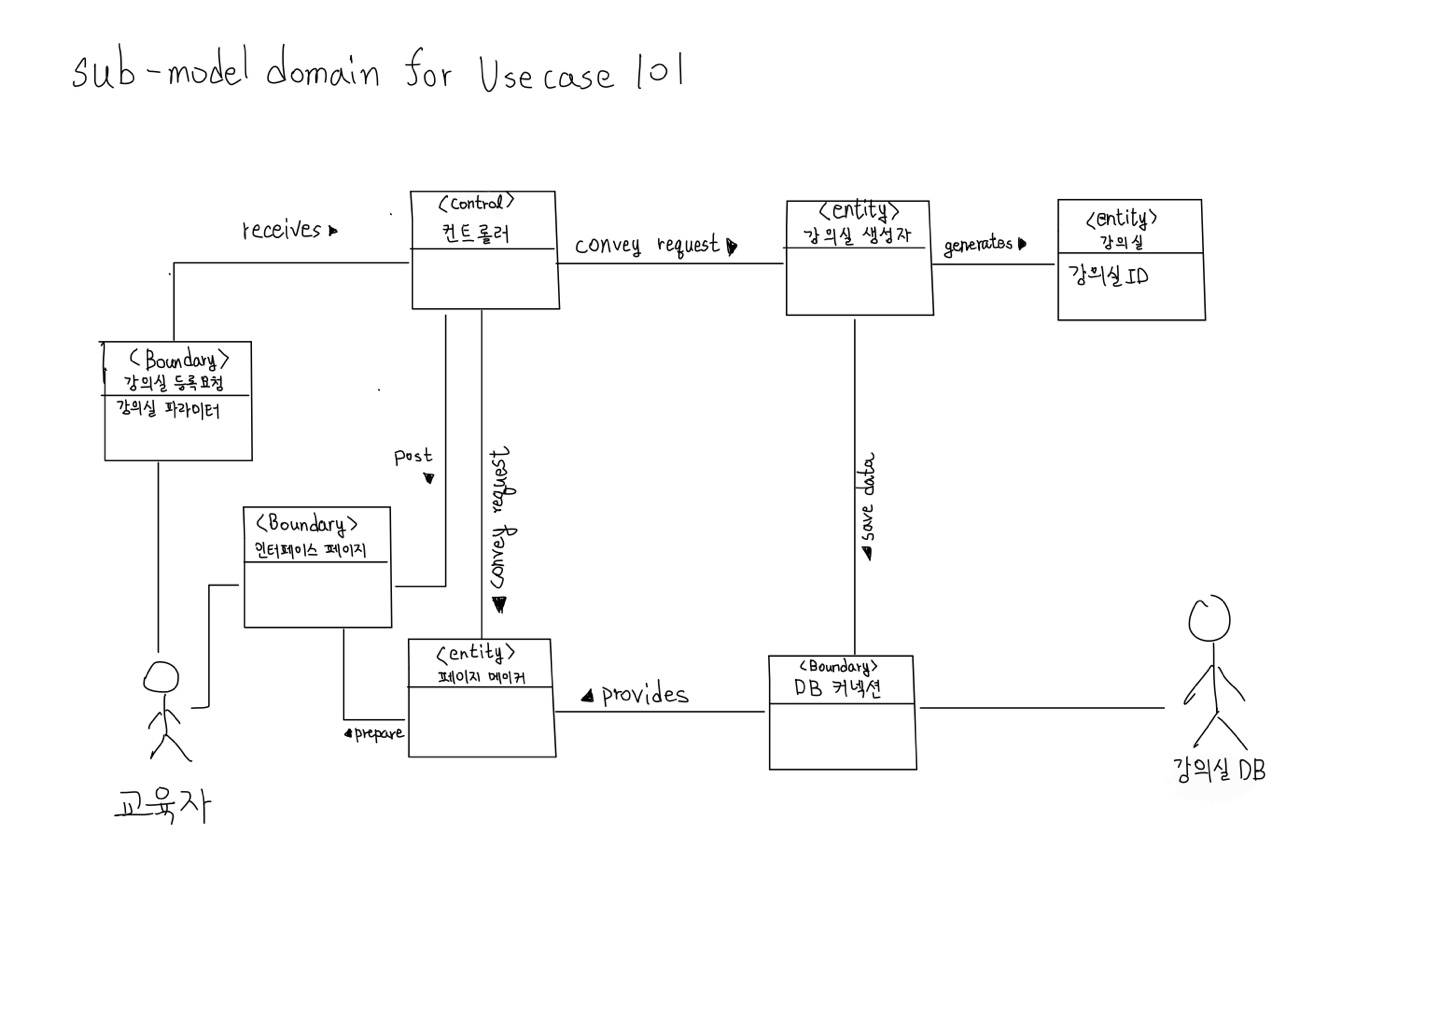 sub-model domain for Usecase 101
receives ▶
<control>
컨트롤러
convey request ▶
<entity>
강의실 생성자
generates ▶
<entity>
강의실
강의실 ID
<Boundary>
강의실 등록요청
강의실 파라미터
post
▼
convey request ▼
save data ▼
<Boundary>
인터페이스 페이지
<entity>
페이지 메이커
◀ prepare
◀ provides
<Boundary>
DB 커넥션
교육자
강의실 DB